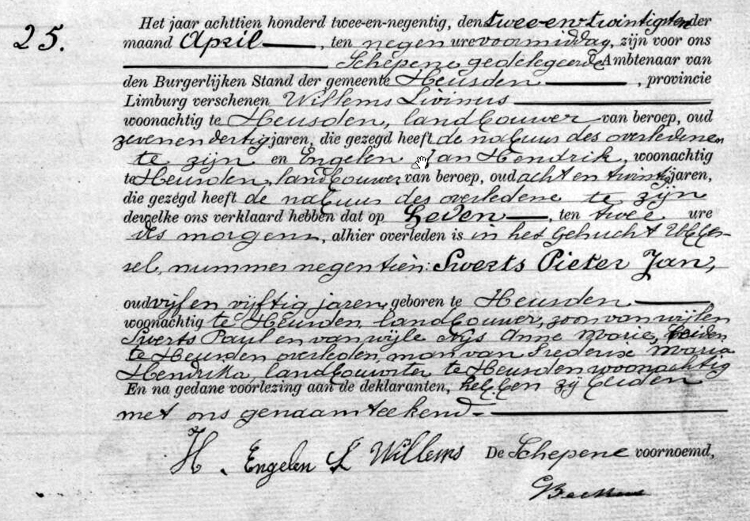 25.
Het jaar achttien honderd twee-en-negentig, den twee en twintigsten der
maand April, ten negen ure voormiddag, zijn voor ons
Schepene gedelegeerde Ambtenaar van
den Burgerlijken Stand der gemeente Heusden, provincie
Limburg verschenen Willems Livinus
woonachtig te Heusden, landbouwer van beroep, oud
zevenendertig jaren, die gezegd heeft de nabuur des overledenen
te zijn en Engelen Jan Hendrik, woonachtig
te Heusden, landbouwer van beroep, oud acht en twintig jaren,
die gezegd heeft de nabuur des overledene te zijn
dewelke ons verklaard hebben dat op heden, ten twee ure
des morgens, alhier overleden is in het gehucht
sel, nummer negentien: Swerts Pieter Jan,
oud vijf en vijftig jaren, geboren te Heusden
woonachtig te Heusden, landbouwer, zoon van wijlen
Swerts Paul en van wijle Nijs Anne Marie, beiden
te Heusden overleden, man van Frederix Maria
Hendrika, landbouwster te Heusden woonachtig
En na gedane voorlezing aan de deklaranten, hebben zij beiden
met ons genaamteekend.-
H. Engelen L Willems De Schepene voornoemd,